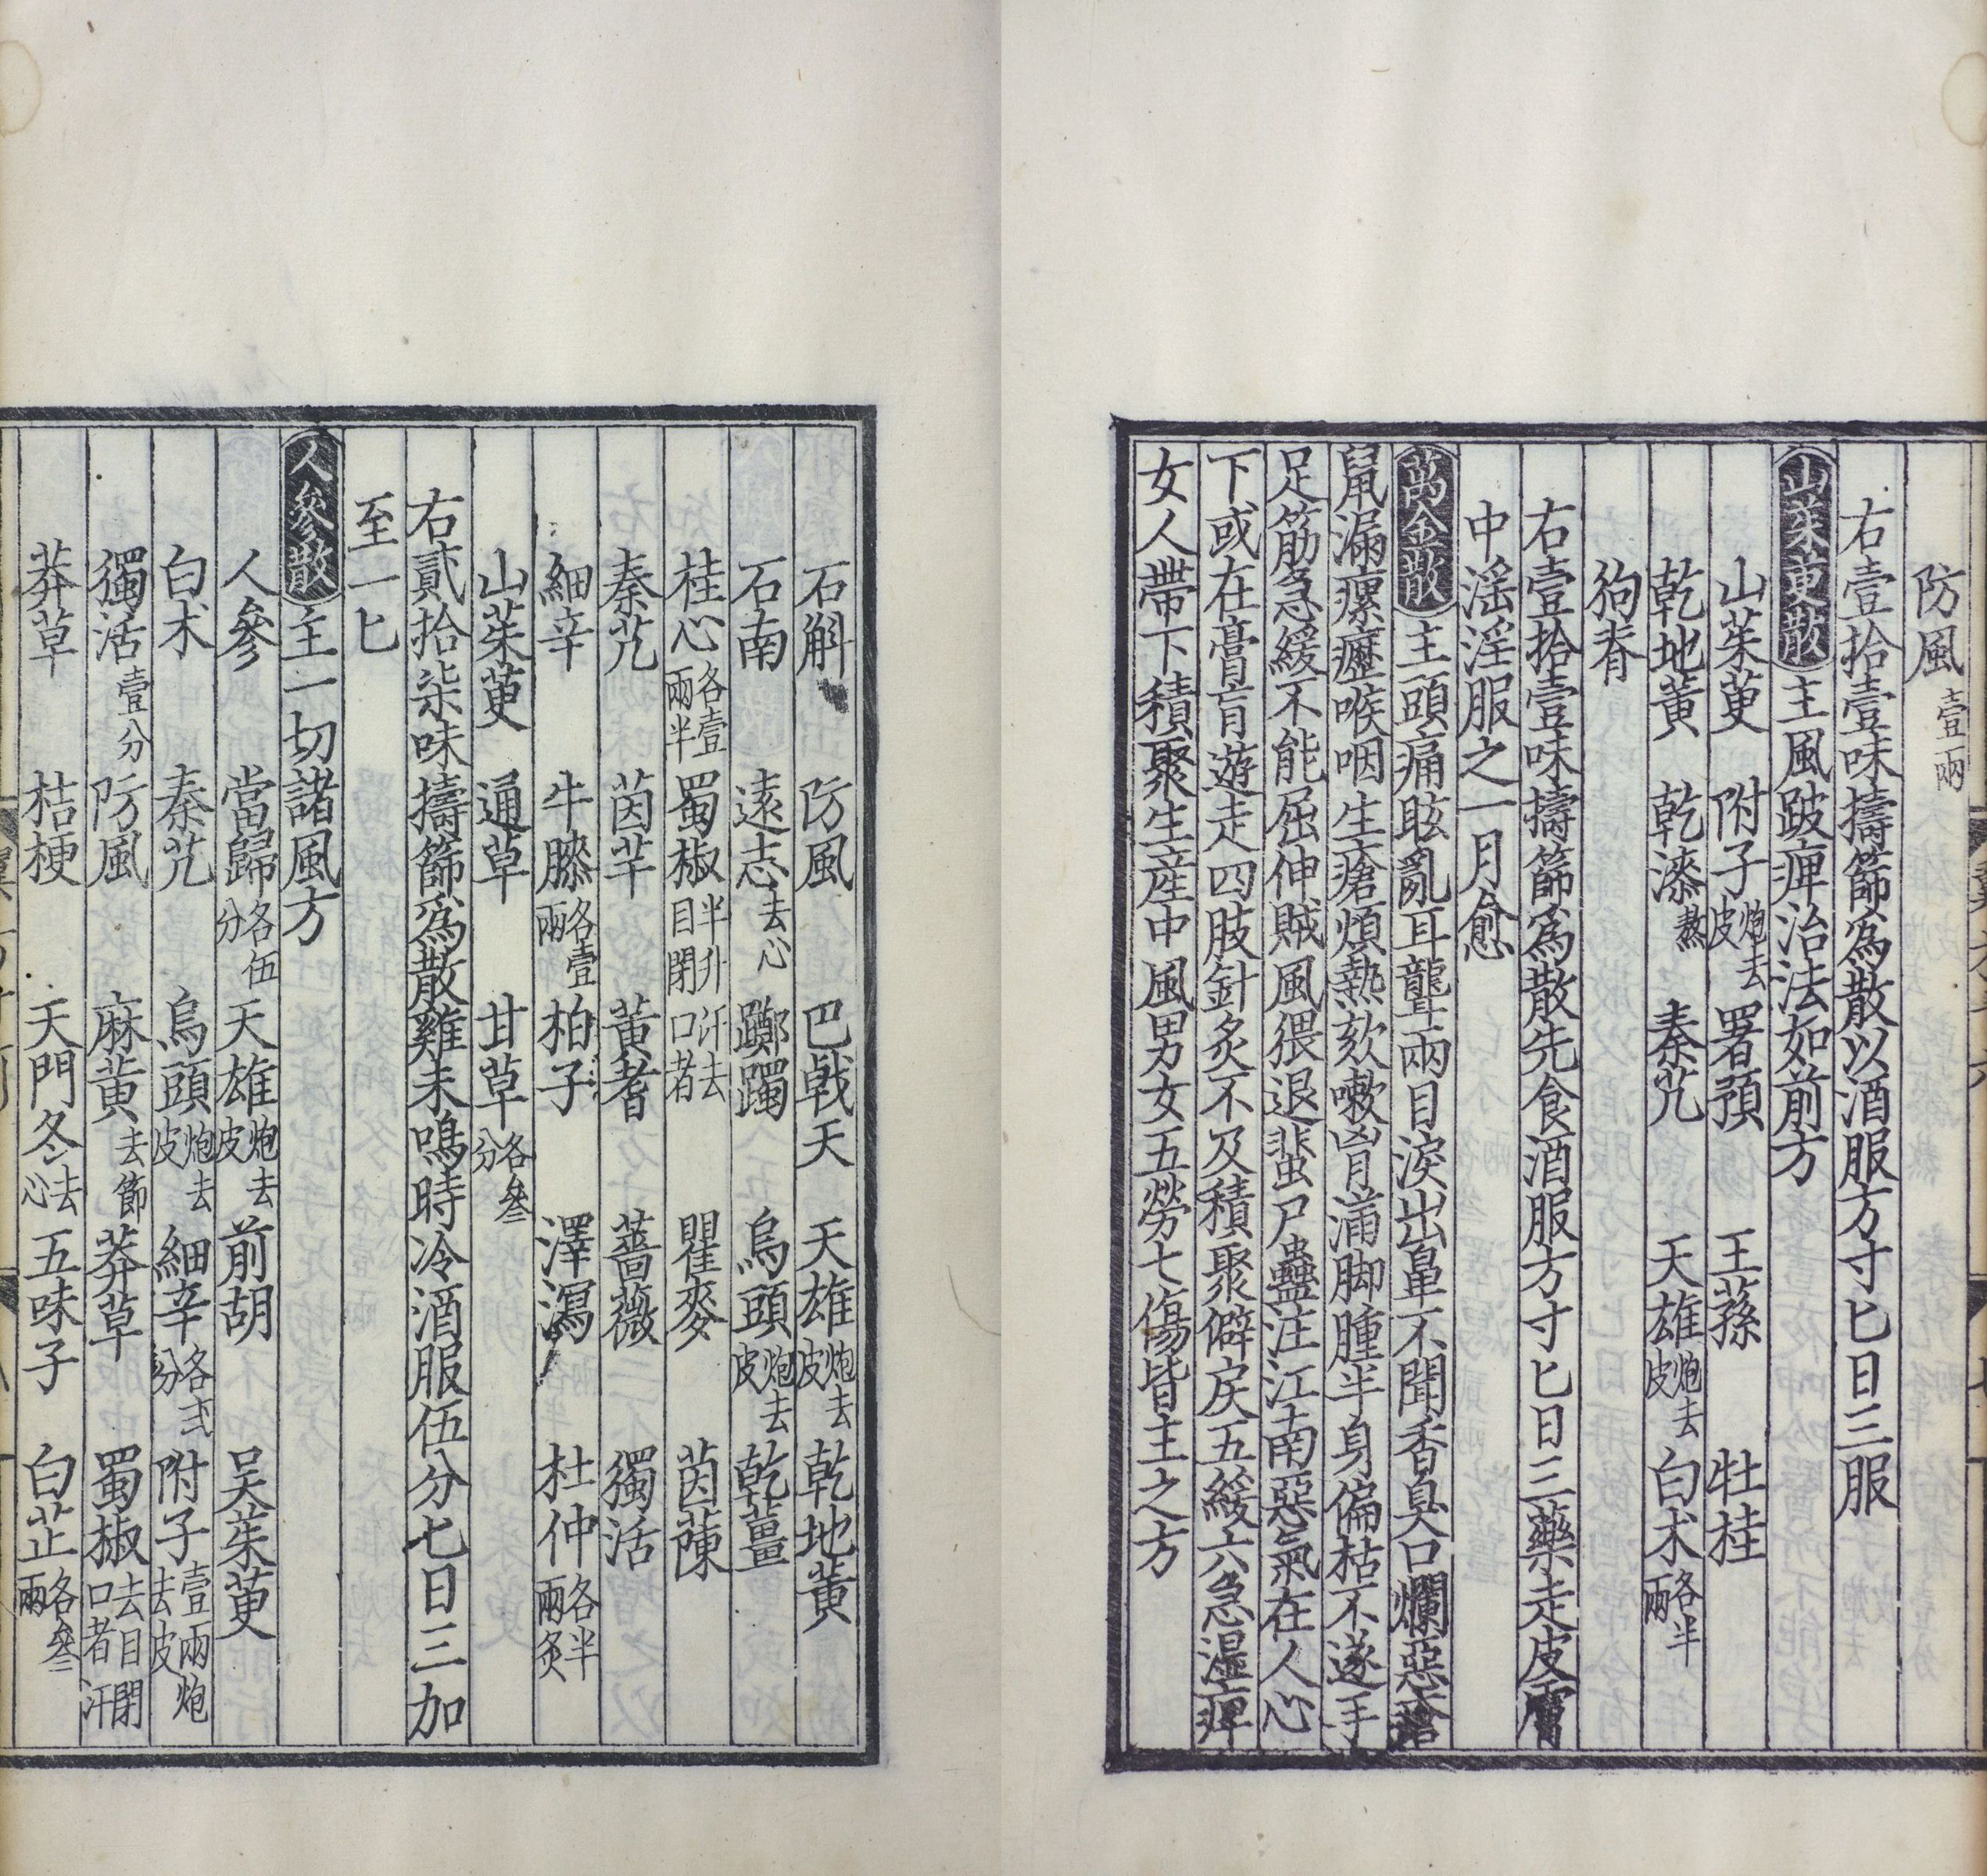 防風壹兩
右壹拾壹味擣篩爲散以酒服方寸匕日三服
山茱萸散主風跛痺治法如前方
山茱萸 附子炮去皮 署預 王蓀 牡桂
乾地黃 乾漆熬 秦艽 天雄炮去皮 白朮各半兩
狗脊
右壹拾壹味擣篩爲散先食酒服方寸匕日三藥走皮膚
中淫淫服之一月愈
萬金散主頭痛眩亂耳聾兩目淚出鼻不聞香臭口爛惡瘡
鼠漏瘰癧喉咽生瘡煩熱欬嗽胷滿脚腫半身偏枯不遂手
足筋急緩不能屈伸賊風猥退蜚尸蠱注江南惡氣在人心
下或在膏肓遊走四肢針灸不及積聚僻戾五緩六急濕痺
女人帶下積聚生産中風男女五勞七傷皆主之方
石斛 防風 巴戟天 天雄炮去皮 乾地黃
石南 遠志去心 躑躅 烏頭炮去皮 乾薑
桂心各壹兩半 蜀椒半升汗去目閉口者 瞿麥 茵蔯
秦艽 茵芋 黃耆 薔薇 獨活
細辛 牛膝各壹兩 柏子 澤瀉 杜仲各半兩炙
山茱萸 通草 甘草各叄分
右貳拾柒味擣篩爲散雞未鳴時冷酒服伍分匕日三加
至一匕
人參散主一切諸風方
人參 當歸各伍分 天雄炮去皮 前胡 吳茱萸
白朮 秦艽 烏頭炮去皮 細辛各貳分 附子壹兩炮去皮
獨活壹分 防風 麻黃去節 莽草 蜀椒去目閉口者汗
莽草 桔梗 天門冬去心 五味子 白芷各叄兩